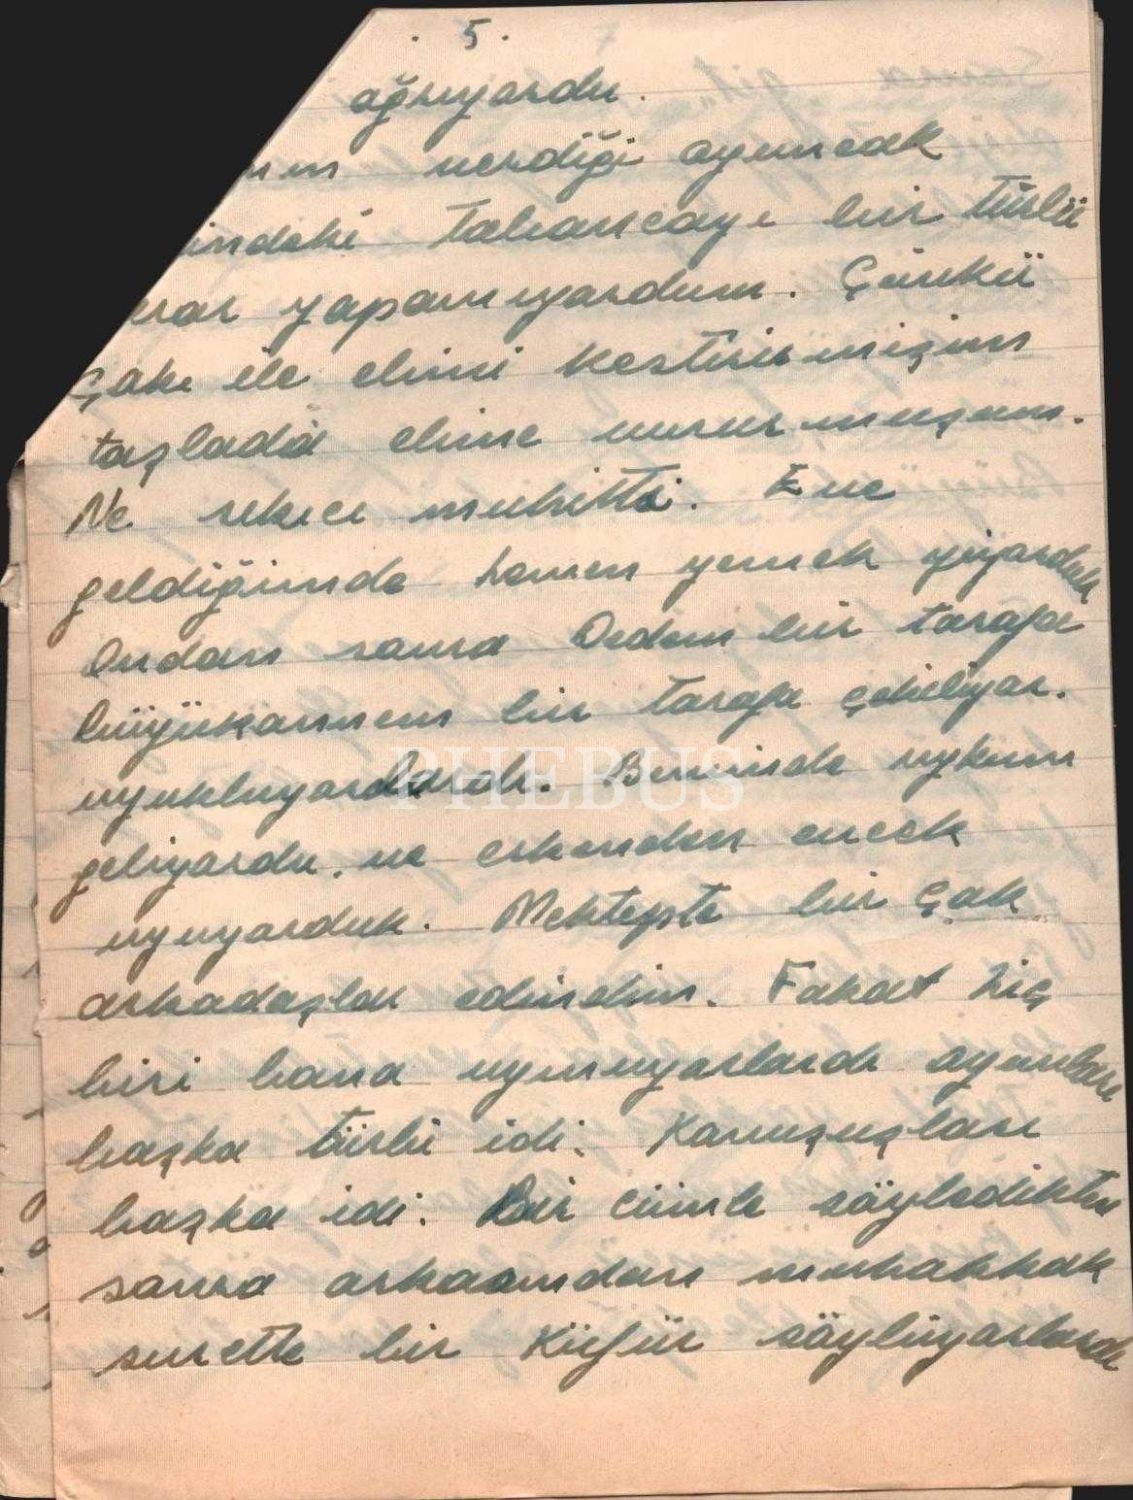 . 5 .
ağrıyordu.
verdiği oyuncak
indeki tabancayı bir türlü
yapamıyordum. Çünkü
çakı ile elimi kestirirmişim
taşlada elime vururmuşum.
Ne sıkıcı muhitti. Eve
geldiğimde hemen yemek yiyorduk
Ondan sonra Dedem bir tarafa
büyükannem bir tarafa çekiliyor.
uyukluyorlardı. Benimde uykum
geliyordu. ve erkenden evcek
uyuyorduk. Mektepte bir çok
arkadaşlar edindim. Fakat hiç
biri bana uymuyorlardı oyunları
başka türlü idi. Konuşuşları
başka idi. Bir cümle söyledikten
sonra arkasından muhakkak
surette bir küfür söylüyorlardı
PHEBUS